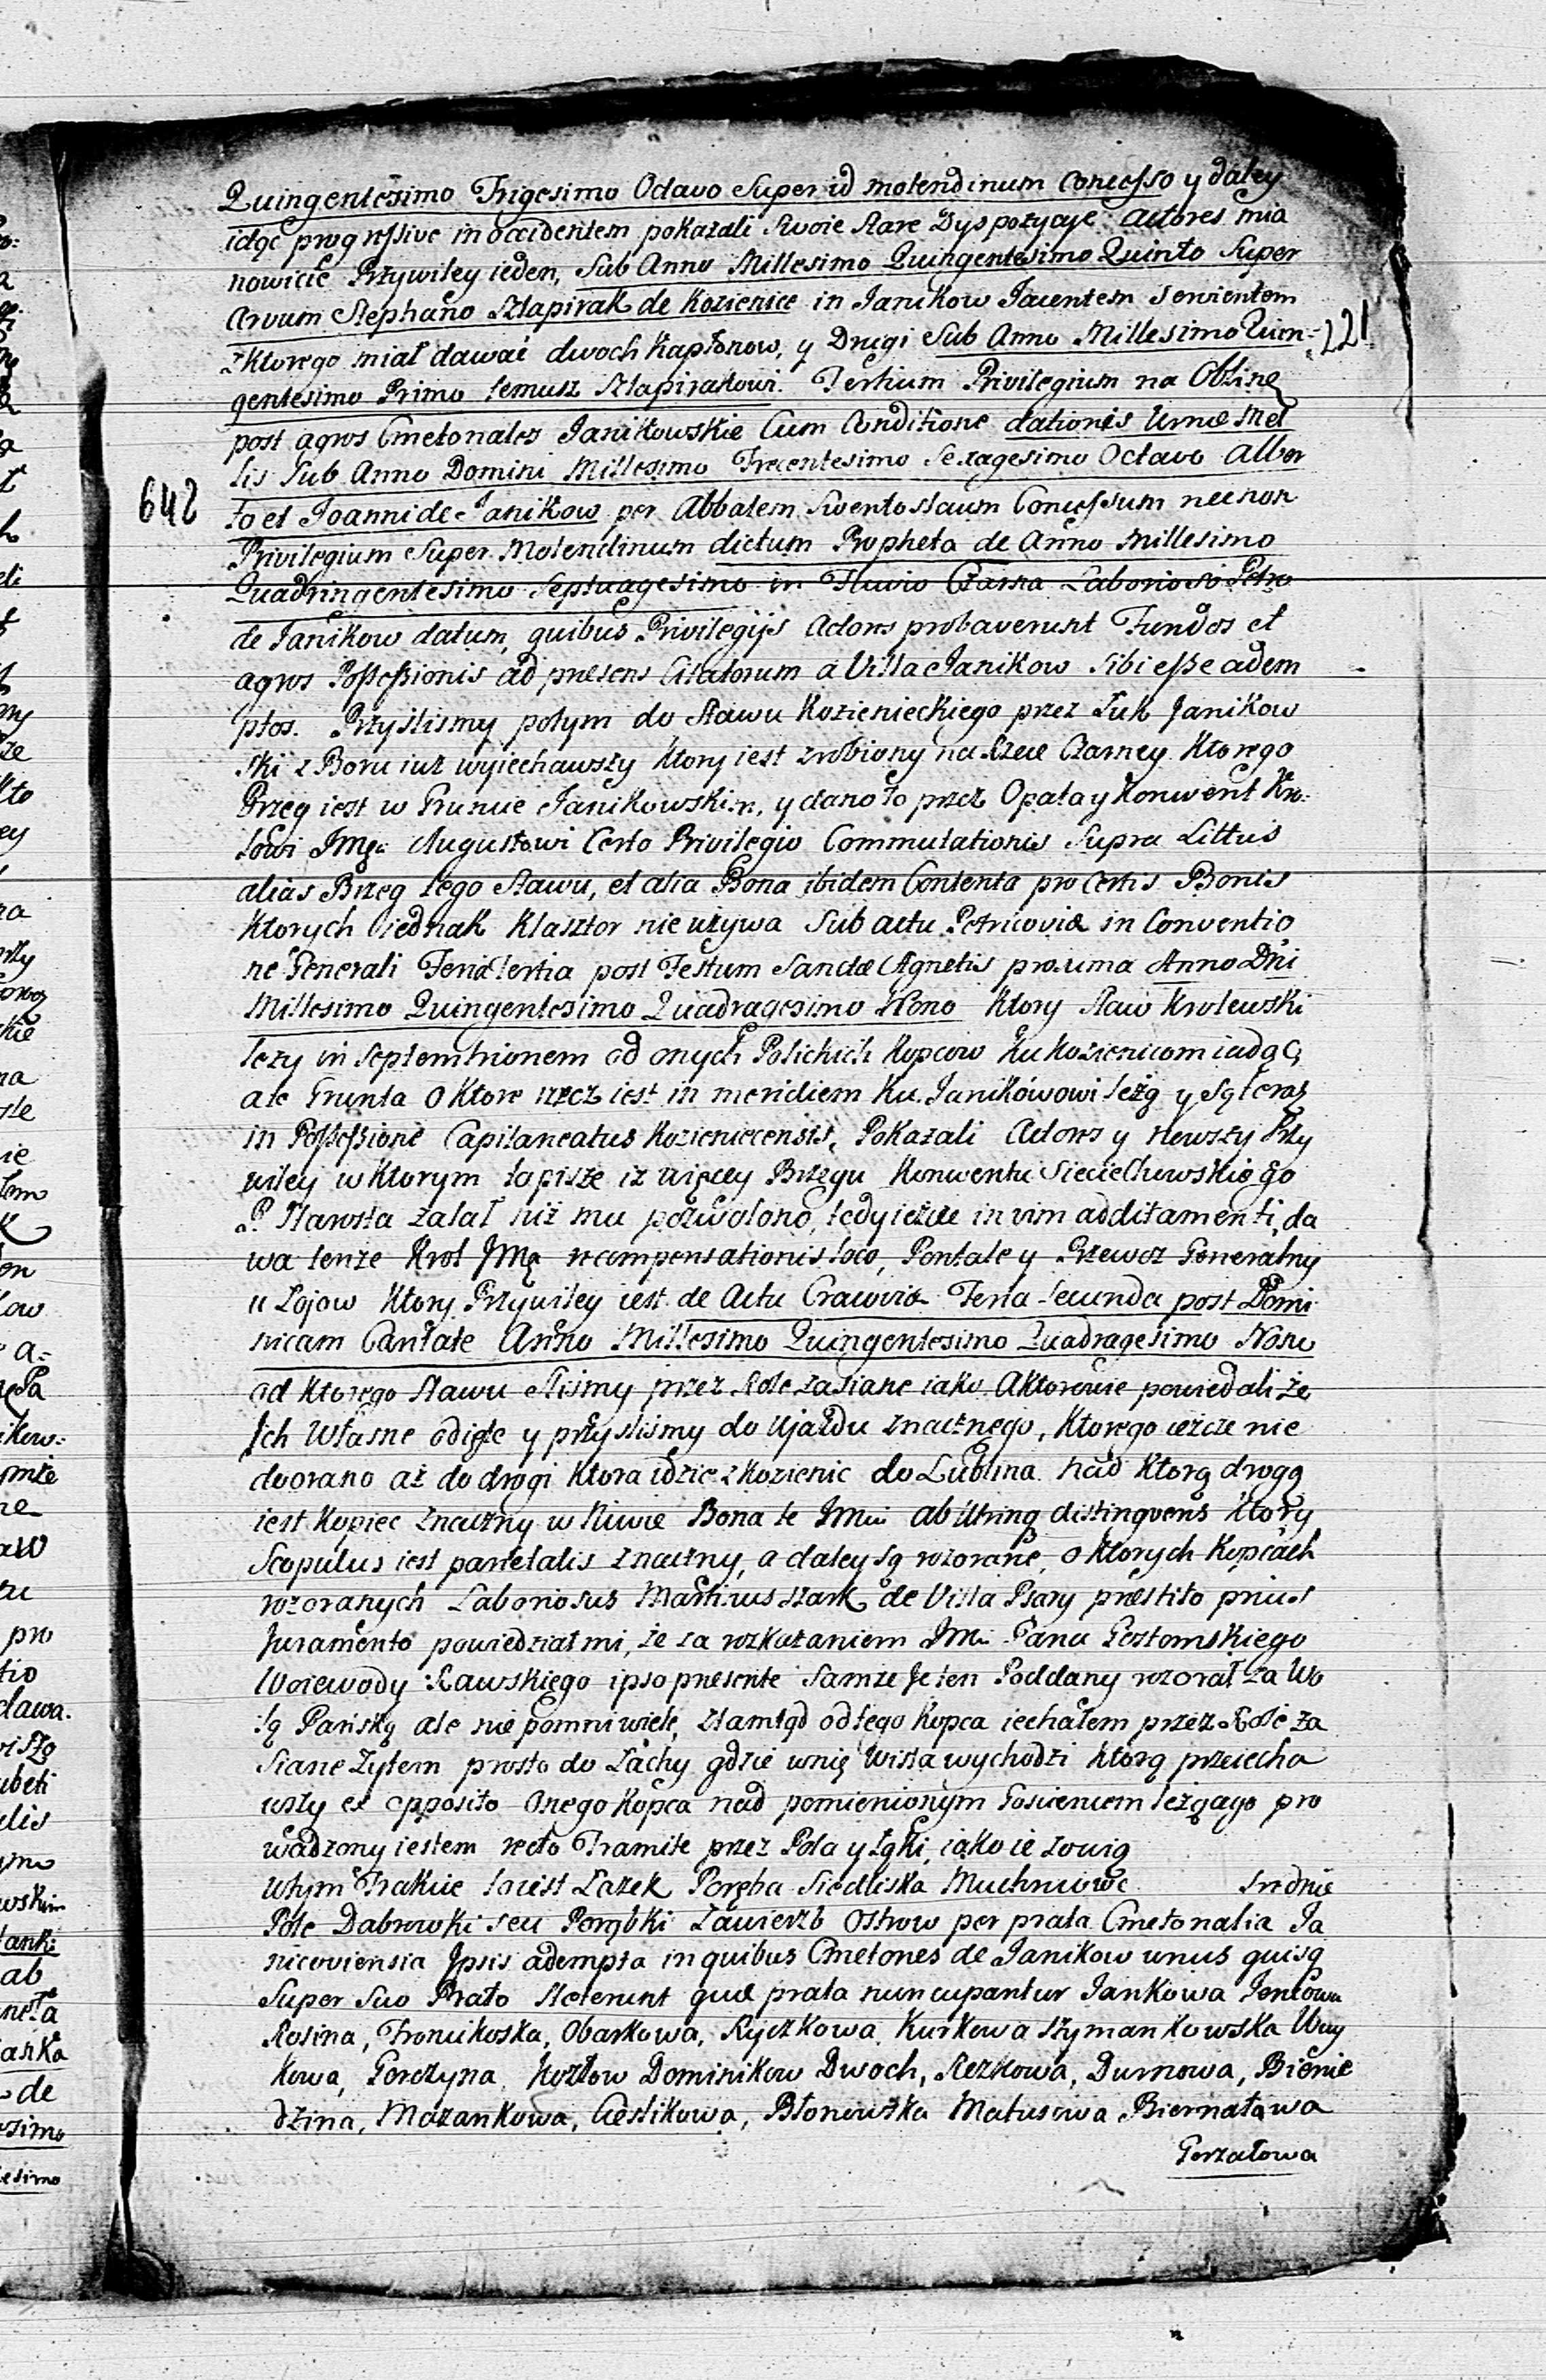 Quingentesimo Trigesimo Octavo Super id molendinum Concesso y daley
idąc progressive in occidentem pokazali Swoie Stare Dyspozycye Actores mia
nowicie Przywiley ieden, Sub Anno Millesimo Quingentesimo Quinto Super
Arvum Stephano Szlapirak de Kozienice in Janikow Jacentem Servientem
z ktorego miał dawać dwoch Kapłonow, y Drugi Sub Anno Millesimo Quin=
221
gentesimo Primo temusz Szlapirakowi. Tertium Privilegium na Obszinę
post agros Cmetonales Janikowskie Cum Conditione dationis Urnæ Mel
lis Sub Anno Domini Millesimo Trecentesimo Sexagesimo Octavo Alber
642
to et Joanni de Janikow per Abbatem Swentoslaum Concessum necnon
Privilegium Super Molendinum dictum Propheta de Anno Millesimo
Quadringentesimo Septuagesimo in Fluvio Czarna Laborioso Petro
de Janikow datum, quibus Privilegijs Actores probaverunt Fundos et
agros Possessionis ad præsens Citatorum a Villa Janikow Sibi esse adem
ptos. Przyslismy potym do Stawu Kozienieckiego przez Łuh Janikow
ski z Boru iuż wyiechawszy ktory iest zrobiony na Rzece Czarney Ktorego
Brzeg iest w Gruncie Janikowskim, y dano to przez Opata y Konwent Kro:
lowi Jmę Augustowi Certo Privilegio Commutationis Supra Littus
alias Brzeg tego Stawu, et alia Bona ibidem Contenta pro Certis Bonis
Ktorych iednak Klasztor nie używa Sub actu Petricoviæ in Conventio
ne Generali Feria tertia post Festum Sanctæ Agnetis proxima Anno Dni
Millesimo Quingentesimo Quadragesimo Nono Ktory Staw Krolewski
leży in Septemtrionem od onych Polickich Kopcow ku Kozienicom iadąc,
ale Grunta o Ktore rzecz iest in meridiem Ku Janikówowi leżą y są teraz
in Possessione Capitaneatus Kozienicensis, Pokazali Actores y nowszy Przy
wiley w Ktorym to pisze iż więcey Brzegu Konwentu Sieciechowskiego
P. Starosta zalał niż mu pozwolono, tedy ieszcze in vim additamenti, da
wa tenże Krol Jmę recompensationis loco, Pontale y Przewoz Generalny
u Łojow Ktory Przywiley iest de Actu Cracoviæ Feria Secunda post Domi
nicam Cantate Anno Millesimo Quingentesimo Quadragesimo Nono
od Ktorego Stawu Slismy przez Role zasiane iako Aktorowie powiedali że
Ich Własne odięte y przyslismy do Ujazdu znacznego, Ktorego ieszcze nie
doorano aż do drogi Ktora idzie z Kozienic do Lublina nad Ktorą drogą
iest Kopiec znaczny w Niwie Bona te Jmci ab utrinq distingvens Ktory
Scopulus iest parietalis znaczny, a daley są rozorane, o Ktorych Kopcach
rozoranych Laboriosus Martinus Szark de Villa Psary præstito prius
Juramento powiedział mi, że za rozkazaniem Jmci Pana Gostomskiego
Woiewody Rawskiego ipso præsente Samże Je ten Poddany rozorał za Wo
lą Pańską ale nie pomni wiele, Ztamtąd od tego Kopca iechałem przez Role za
siane Żytem prosto do Łachy gdzie w nię Wisła wychodzi Ktorą przeiecha
wszy ex opposito onego Kopca nad pomienionym Goscieńcem leżącego pro
wadzony iestem recto Tramite przez Pola y Łąki, iako ie zowią
w tym Trakcie to iest Łazek Poręba Siedliska Muchniowe Srednie
Pole Dabrowki seu Porębki Zawierzb Ostrow per prata Cmetonalia Ja
nicoviensia Ipsis adempta in quibus Cmetones de Janikow unus quisq
Super Suo Prato Steterunt quæ prata nuncupantur Jankowa Jenłowa
Rosina, Froncikoska, Obarkowa, Ryczkowa Kurkowa Szymankowska Way
kowa, Gorczyna Kozłow Dominikow Dwoch, Rezkowa, Durnowa, Bienie
dzina, Mazankowa, Cieslikowa, Błonowska Matusowa Biernatowa
Gorzałowa